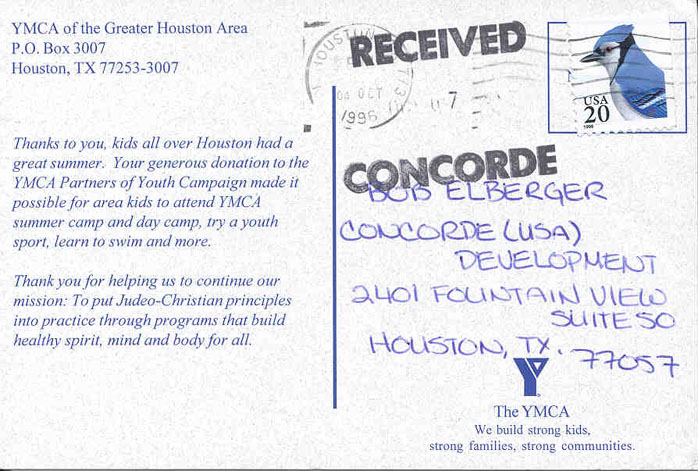 YMCA of the Greater Houston Area
P.O. Box 3007
Houston, TX 77253-3007
Thanks to you, kids all over Houston had a
great summer. Your generous donation to the
YMCA Partners of Youth Campaign made it
possible for area kids to attend YMCA
summer camp and day camp, try a youth
sport, learn to swim and more.
Thank you for helping us to continue our
mission: To put Judeo-Christian principles
into practice through programs that build
healthy spirit, mind and body for all.
HOUSTON
OCT
1996
RECEIVED
7
USA
20
1996
CONCORDE
BOB ELBERGER
CONCORDE (USA)
DEVELOPMENT
2401 FOUNTAIN VIEW
SUITE 50
HOUSTON, TX. 77057
Y
The YMCA
We build strong kids,
strong families, strong communities.